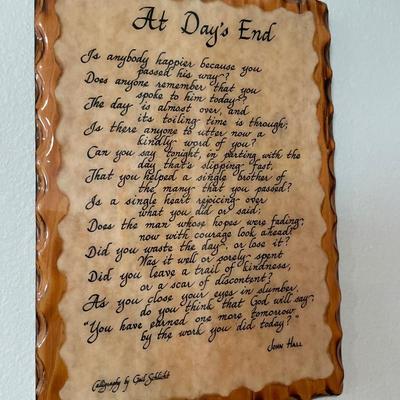 At Day's End
Is anybody happier because you
passed his way?
Does anyone remember that you
spoke to him today?
The day is almost over, and
its toiling time is through;
Is there anyone to utter now a
kindly word of you?
Can you say tonight, in parting with the
day that's slipping fast,
That you helped a single brother of
the many that you passed?
Is a single heart rejoicing over
what you did or said;
Does the man whose hopes were fading,
now with courage look ahead?
Did you waste the day, or lose it?
Was it well or sorely spent
Did you leave a trail of kindness,
or a scar of discontent?
As you close your eyes in slumber,
do you think that God will say,
"You have earned one more tomorrow
by the work you did today?"
John Hall
Calligraphy by Gail Schlicht